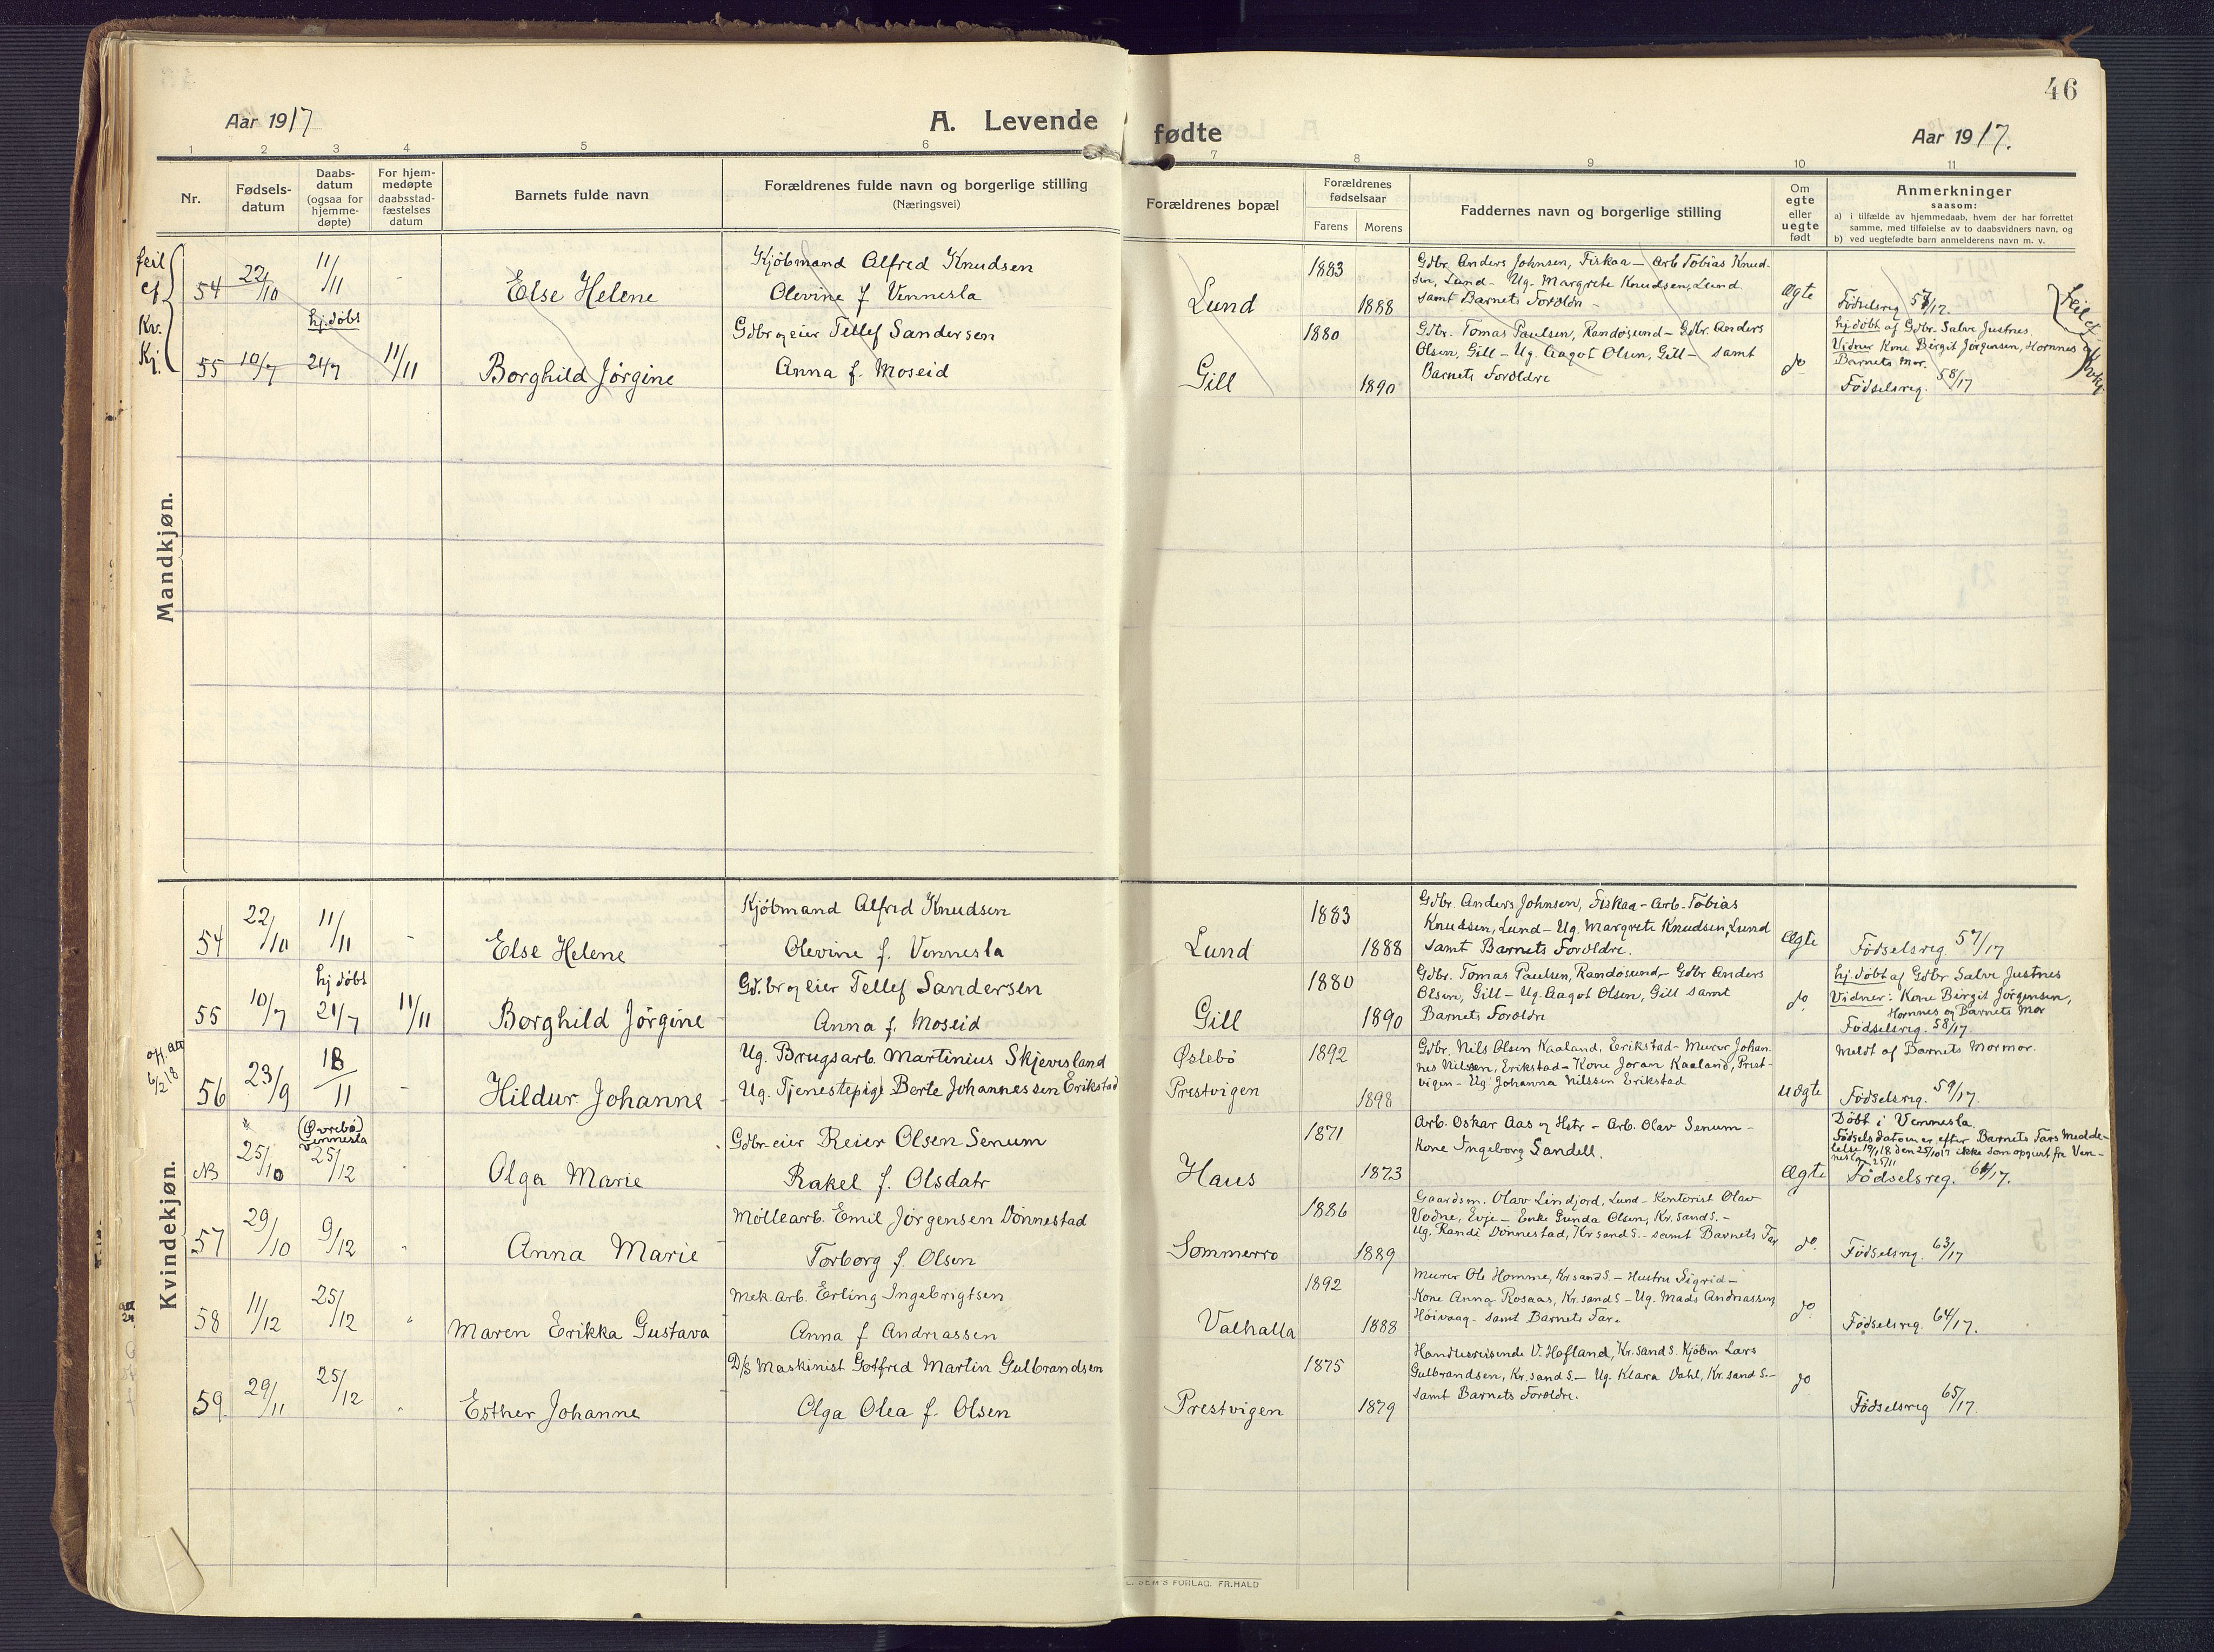 46
Aar 1917
A. Levende
fødte
Aar 1917.
1 2 3 4 5 6 7 8 9 10 11
Nr.
Fødsels-
datum
Daabs-
datum
(ogsaa for
hjemme-
døpte)
For hjem-
medøpte
daabsstad-
fæstelses
datum
Barnets fulde navn
Forældrenes fulde navn og borgerlige stilling
(Næringsvei)
Forældrenes bopæl
Forældrenes
fødselsaar
Farens Morens
Faddernes navn og borgerlige stilling
Om
egte
eller
uegte
født
Anmerkninger
saasom:
a) i tilfælde av hjemmedaab, hvem der har forrettet
samme, med tilføielse av to daabsvidners navn, og
b) ved uegtefødte barn anmelderens navn m. v.
Mandkjøn.
feil
cf.
Kv.
Kj.
54 22/10 11/11 - Else Helene
Kjøbmand Alfred Knudsen
Olevine f Vennesla
Lund 1883 1888
Gdbr. Anders Johnsen, Fiskaa - Arb Tobias Knud-
sen, Lund - Ug. Margrete Knudsen, Lund
samt Barnets Foroldre -
Ægte
Fødselsreg 57/17.
feil cf
55 10/7 hj. døbt 21/7 11/11 Borghild Jørgine
Gdbr og eier Tellef Sandersen
Anna f. Moseid
Gill 1880 1890
Gdbr. Tomas Paulsen, Randøsund - Gdbr. Anders
Olsen, Gill - Ug. Aagot Olsen, Gill - samt
Barnets Foroldre
do
hj. døbt af Gdbr. Salve Justnes.
Vidner Kone Birgit Jørgensen, Hornnes og
Barnets Mor.
Fødselsreg. 58/17
Kvindekjøn.
54 22/10 11/11 - Else Helene
Kjøbmand Alfred Knudsen
Olevine f. Vennesla
Lund 1883 1888
Gdbr. Anders Johnsen, Fiskaa - Arb. Tobias
Knudsen, Lund - Ug. Margrete Knudsen, Lund
samt Barnets Foroldre.
Ægte
Fødselsreg. 57/17
55 10/7 hj døbt 21/7 11/11 Borghild Jørgine
Gdbr og eier Tellef Sandersen
Anna f. Moseid
Gill 1880 1890
Gdbr. Tomas Paulsen, Randøsund - Gdbr Anders
Olsen, Gill - Ug. Aagot Olsen, Gill samt
Barnets Foroldre
do
hj. døbt af Gdbr Salve Justnes
Vidner: Kone Birgit Jørgensen,
Hornnes og Barnets Mor
Fødselsreg. 58/17.
off. att
6/2 18
56 23/9 18/11 - Hildur Johanne
Ug. Brugsarb. Martinius Skjevesland
Ug. Tjenestepige Berte Johannessen Erikstad
Øslebø
Prestvigen
1892 1898
Gdbr. Nils Olsen Kaaland, Erikstad - Murer Johan-
nes Nielsen, Erikstad - Kone Joran Kaaland, Prest-
vigen - Ug. Johanna Nilssen Erikstad
uægte
Meldt af Barnets Mormor.
Fødselsreg. 59/17.
NB 25/10 (Øvrebø) Vennesla 25/12 Olga Marie
Gdbr eier Reier Olsen Senum
Rakel f. Olsdatr
Haus 1871 1873
Arb. Oskar Aas og Hstr - Arb. Olav Senum -
Kone Ingeborg Sandell.
Ægte
Døbt i Vennesla
Fødselsdatoen er efter Barnets Fars Medde-
lelse 19/1 18 den 25/10 17 ikke som opgivt fra Ven-
nesla 25/11
Fødselsreg. 61/17.
57 29/10 9/12 Anna Marie
Møllearb. Emil Jørgensen Dønnestad
Torborg f. Olsen
Sømmerro 1886 1889
Gaardsm. Olav Lindjord, Lund - Kontorist Olav
Vodne, Evje - Enke Gunda Olsen, Kr. sand S. -
Ug. Randi Dønnestad, Kr sand S. - samt Barnets Far
do.
Fødselsreg. 63/17
58 11/12 25/12 Maren Erikka Gustava
Mek arb. Erling Ingebrigtsen
Anna f Andreassen
Valhalla 1892 1888
Murer Ole Homme, Kr sand S. - Hustru Sigrid -
Kone Anna Rosaas, Kr. sand S - Ug. Mads Andreassen,
Høivaag - samt Barnets Far.
do
Fødselsreg. 64/17.
59. 29/11 25/12 Esther Johanne
D/S Maskinist Gotfred Martin Gulbrandsen
Olga Olea f. Olsen
Prestvigen 1875 1879
Handelsreisende V. Hofland, Kr. sand S. Kjøbm Lars
Gulbrandsen, Kr. sand S. - Ug. Klara Dahl, Kr. sand S. -
samt Barnets Foroldre.
do
Fødselsreg 65/17.
FORLAG. FR. HALD